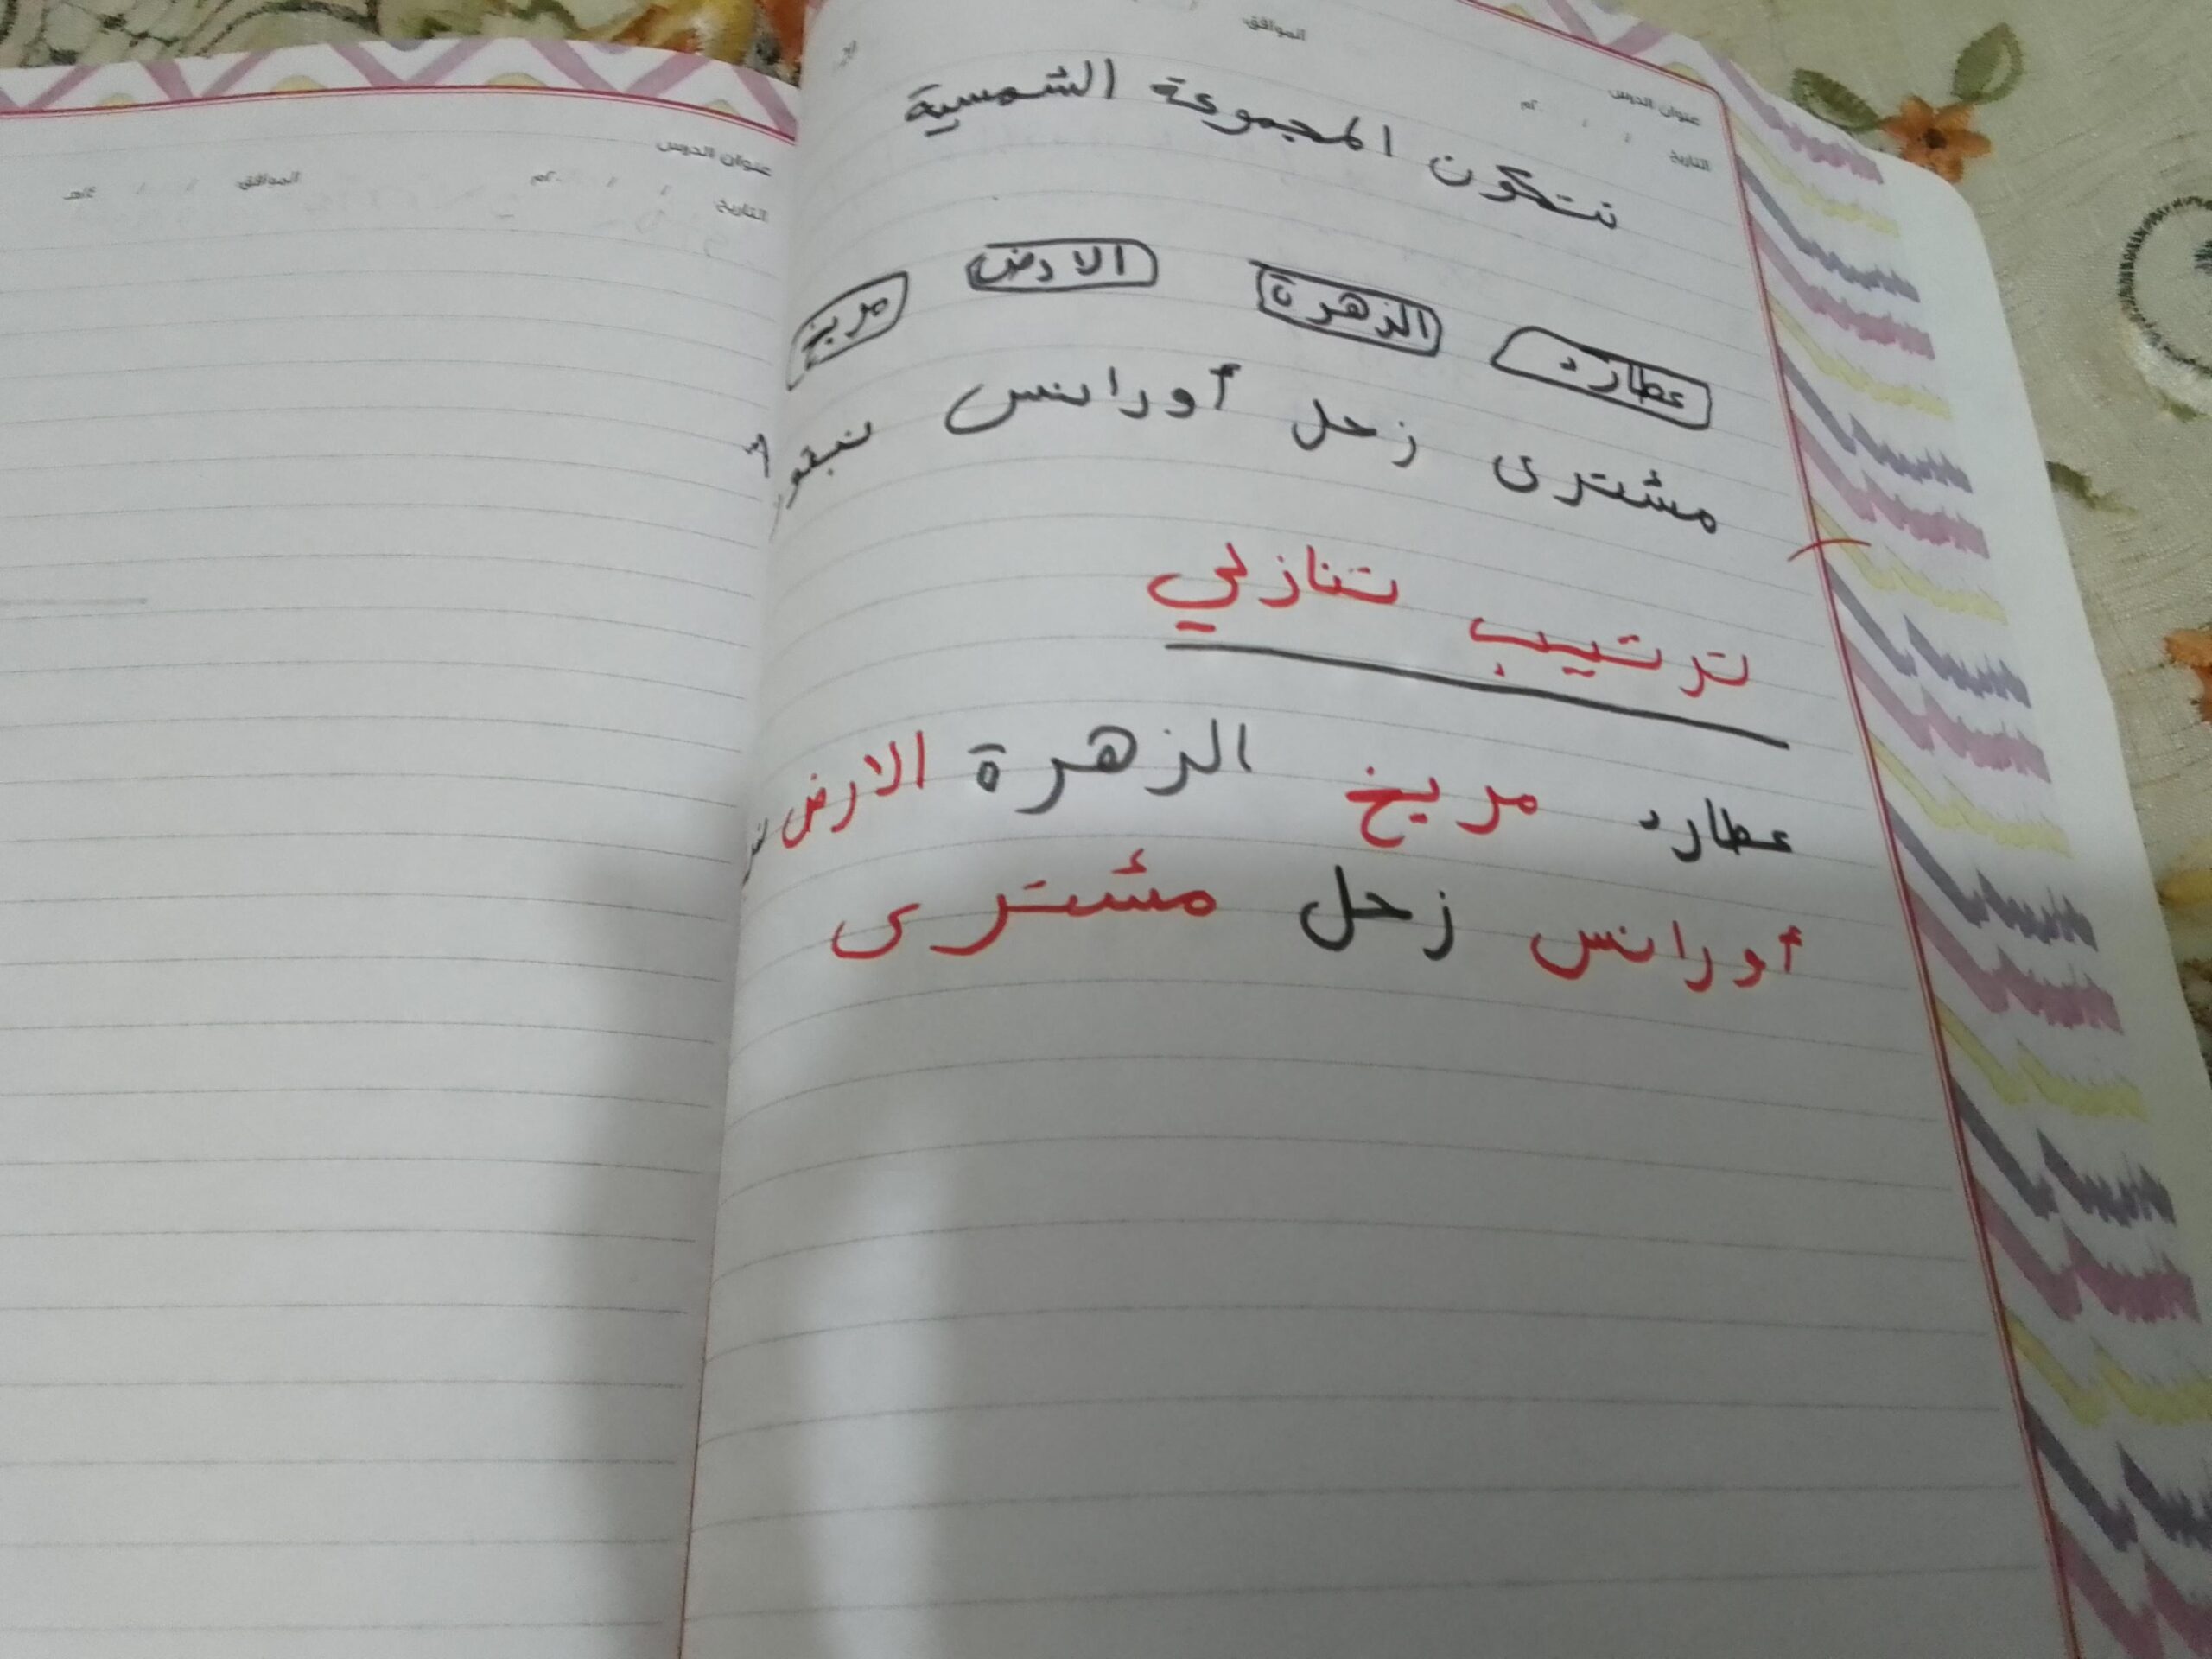 عنوان الدرس
التاريخ / / م الموافق
تتكون المجموعة الشمسية
عطارد الزهرة الارض مريخ
مشترى زحل أورانس نبتون
ترتيب تنازلي
عطارد مريخ الزهرة الارض
أورانس زحل مشترى
عنوان الدرس
التاريخ / / م الموافق / / 14هـ